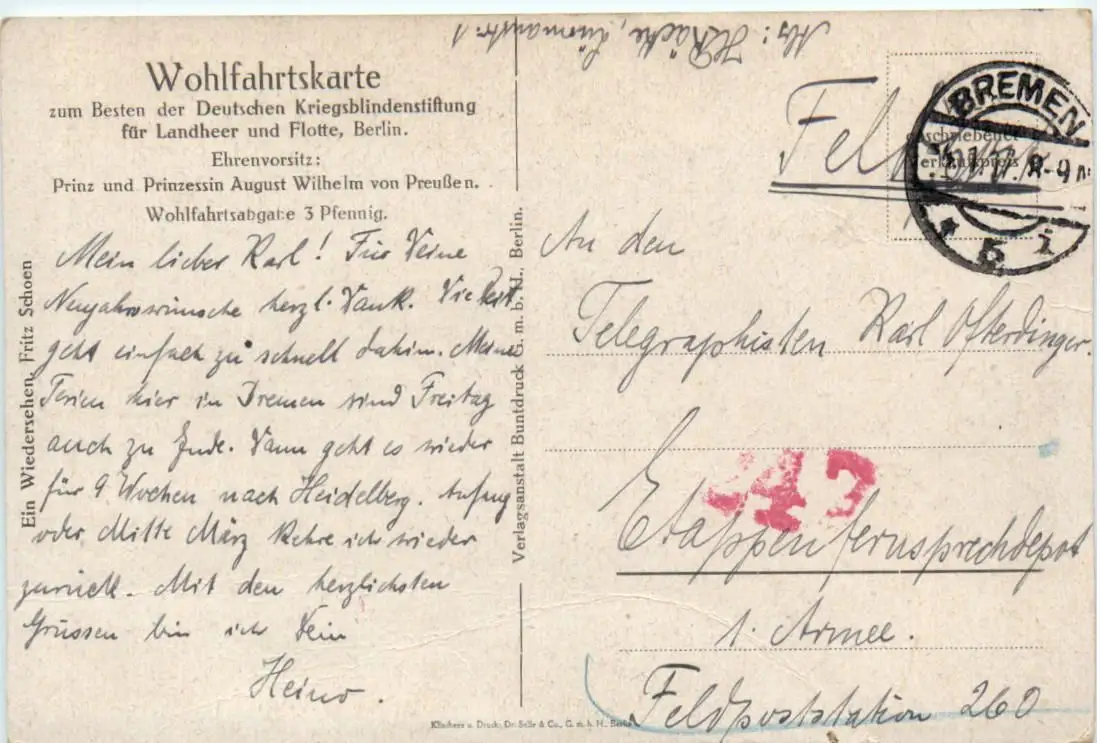 Wohlfahrtskarte
zum Besten der Deutschen Kriegsblindenstiftung
für Landheer und Flotte, Berlin.
Ehrenvorsitz:
Prinz und Prinzessin August Wilhelm von Preußen.
Wohlfahrtsabgabe 3 Pfennig.
Mein lieber Karl! Für Deine
Neujahrswünsche herzl. Dank. Die Zeit
geht einfach zu schnell dahin. Meine
Ferien hier in Bremen sind Freitag
auch zu Ende. Dann geht es wieder
für 9 Wochen nach Heidelberg. Anfang
oder Mitte März kehre ich wieder
zurück. Mit den herzlichsten
Grüssen bin ich Dein
Heino.
Ein Wiedersehen, Fritz Schoen
Verlagsanstalt Buntdruck G. m. b. H., Berlin.
Klischees u. Druck: Dr. Selle & Co., G. m. b. H., Berlin
Abs: H.
BREMEN
17. 8-9 N
* 5 i
Verkaufspreis
An den
Telegraphisten Karl Ofterdinger.
Etappenfernsprechdepot
1. Armee.
Feldpoststation 260